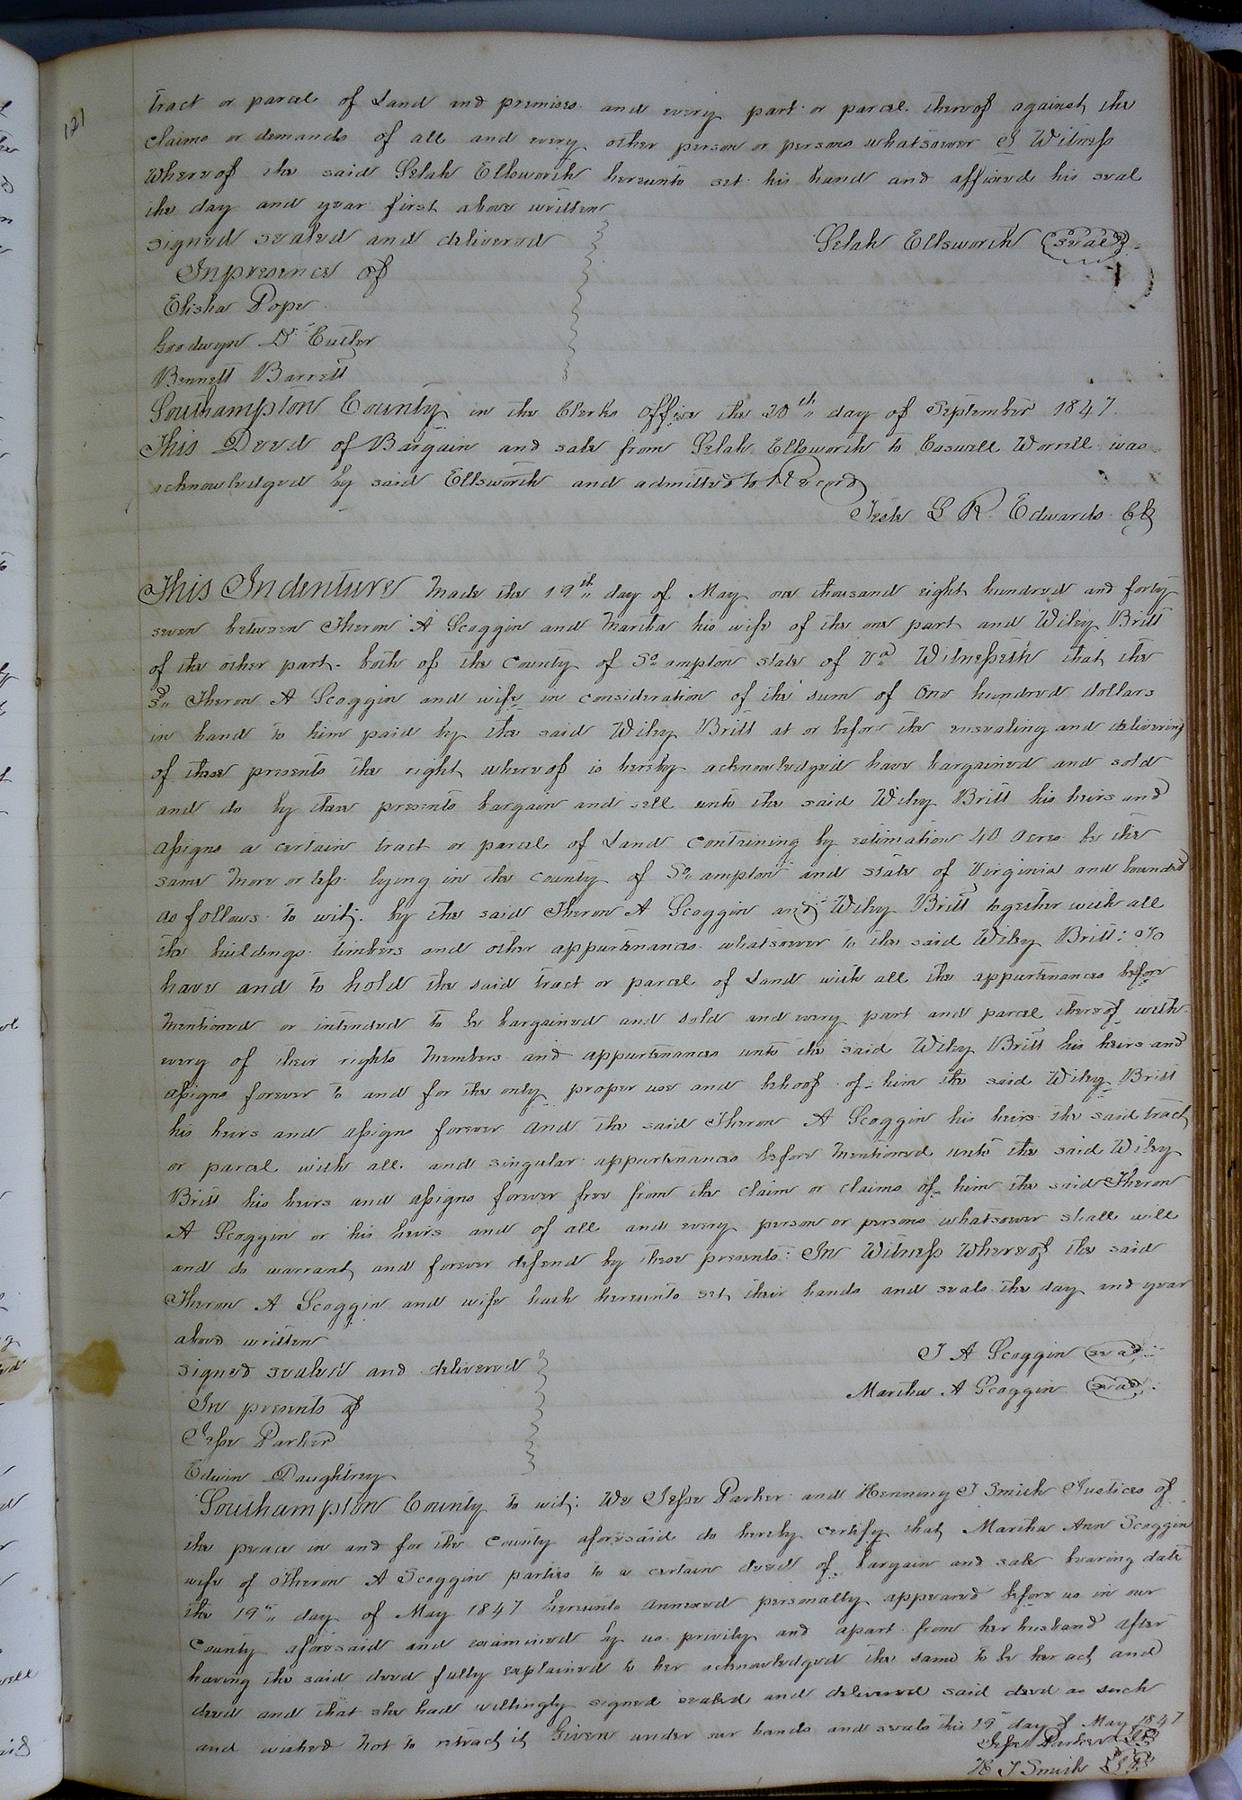 121
tract or parcel of Land and premises and every part or parcel thereof against the
claims or demands of all and every other person or persons whatsoever I Witness
Whereof the said Selah Ellsworth hereunto set his hand and affixed his seal
the day and year first above written
signed sealed and delivered
Selah Ellsworth (seal)
In presence of
Elisha Pope
Goodwyn D Cutler
Bennett Barrett
Southampton County in the Clerks Office the 20th day of September 1847
This Deed of Bargain and sale from Selah Ellsworth to Caswell Worrell was
acknowledged by said Ellsworth and admitted to Record
Teste L R Edwards Clk
This Indenture Made the 19th day of May one thousand eight hundred and forty
seven between Theron A Scoggin and Martha his wife of the one part and Wiley Britt
of the other part. both of the County of So ampton state of Va Witnesseth that the
sd Theron A Scoggin and wife in consideration of the sum of One hundred dollars
in hand to him paid by the said Wiley Britt at or before the ensealing and delivering
of these presents the right whereof is hereby acknowledged have bargained and sold
and do by these presents bargain and sell unto the said Wiley Britt his heirs and
assigns a certain tract or parcel of Land containing by estimation 40 acres be the
same more or less lying in the county of So ampton and state of Virginia and bounded
as follows to wit; by the said Theron A Scoggin and Wiley Britt together with all
the buildings timbers and other appurtenances whatsoever to the said Wiley Britt: To
have and to hold the said tract or parcel of Land with all the appurtenances before
mentioned or intended to be bargained and sold and every part and parcel thereof with
every of their rights members and appurtenances unto the said Wiley Britt his heirs and
assigns forever to and for the only proper use and behoof of him the said Wiley Britt
his heirs and assigns forever and the said Theron A Scoggin his heirs the said tract
or parcel with all and singular appurtenances before mentioned unto the said Wiley
Britt his heirs and assigns forever free from the claim or claims of him the said Theron
A Scoggin or his heirs and of all and every person or persons whatsoever shall will
and do warrant and forever defend by these presents: In Witness Whereof the said
Theron A Scoggin and wife hath hereunto set their hands and seals the day and year
above written
signed sealed and delivered
T A Scoggin (seal)
In presents of
Martha A Scoggin (seal)
Jesse Parker
Edwin Daughtrey
Southampton County to wit; We Jesse Parker and Henning T Smith Justices of
the peace in and for the County aforesaid do hereby certify that Martha Ann Scoggin
wife of Theron A Scoggin parties to a certain deed of bargain and sale bearing date
the 19th day of May 1847 hereunto annexed personally appeared before us in our
County aforesaid and examined by us privily and apart from her husband after
having the said deed fully explained to her acknowledged the same to be her act and
deed and that she had willingly signed sealed and delivered said deed as such
and wished not to retract it Given under our hands and seals this 19th day of May 1847
Jesse Parker
H T Smith